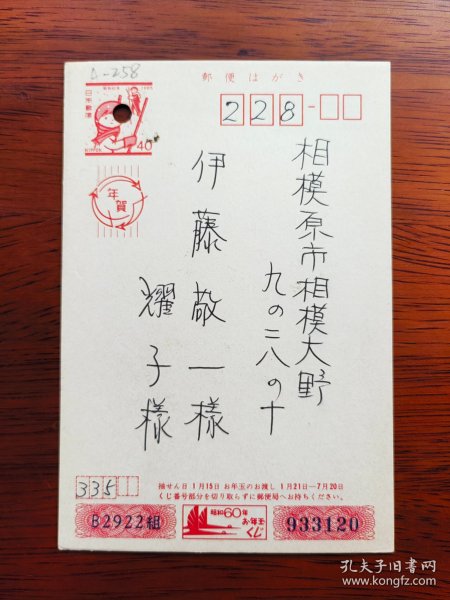 C-258
郵便はがき
日本郵便
1985
NIPPON
40
228
年賀
相模原市相模大野
九の二八の十
伊藤敬一様
耀子様
抽せん日 1月15日 お年玉のお渡し 1月21日―7月20日
くじ番号部分を切り取らずに郵便局へお持ちください。
335
B2922組
昭和60年
お年玉
くじ
933120
孔夫子旧书网
www.kongfz.com